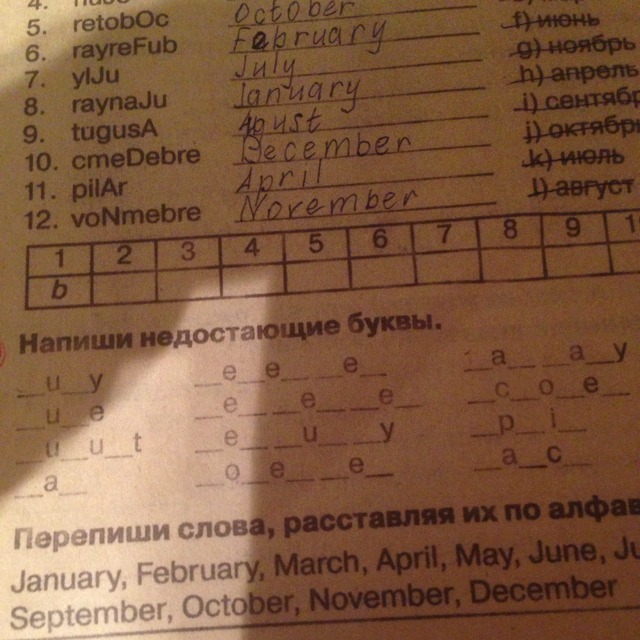 4.
5. retobOc October f) июнь
6. rayreFub February g) ноябрь
7. ylJu July h) апрель
8. raynaJu January i) сентябр
9. tugusA Agust j) октябрь
10. cmeDebre December k) июль
11. pilAr April l) август
12. voNmebre November
1 2 3 4 5 6 7 8 9 1
b
Напиши недостающие буквы.
__u__y __e__e__ __e__ __a__ __a__y
__u__e __e__ __e__ __e__ __c__o__e__
__u__u__t __e__ __u__ __y __p__i__
__a__ __o__e__ __e__ __a__c__
Перепиши слова, расставляя их по алфав
January, February, March, April, May, June, Ju
September, October, November, December